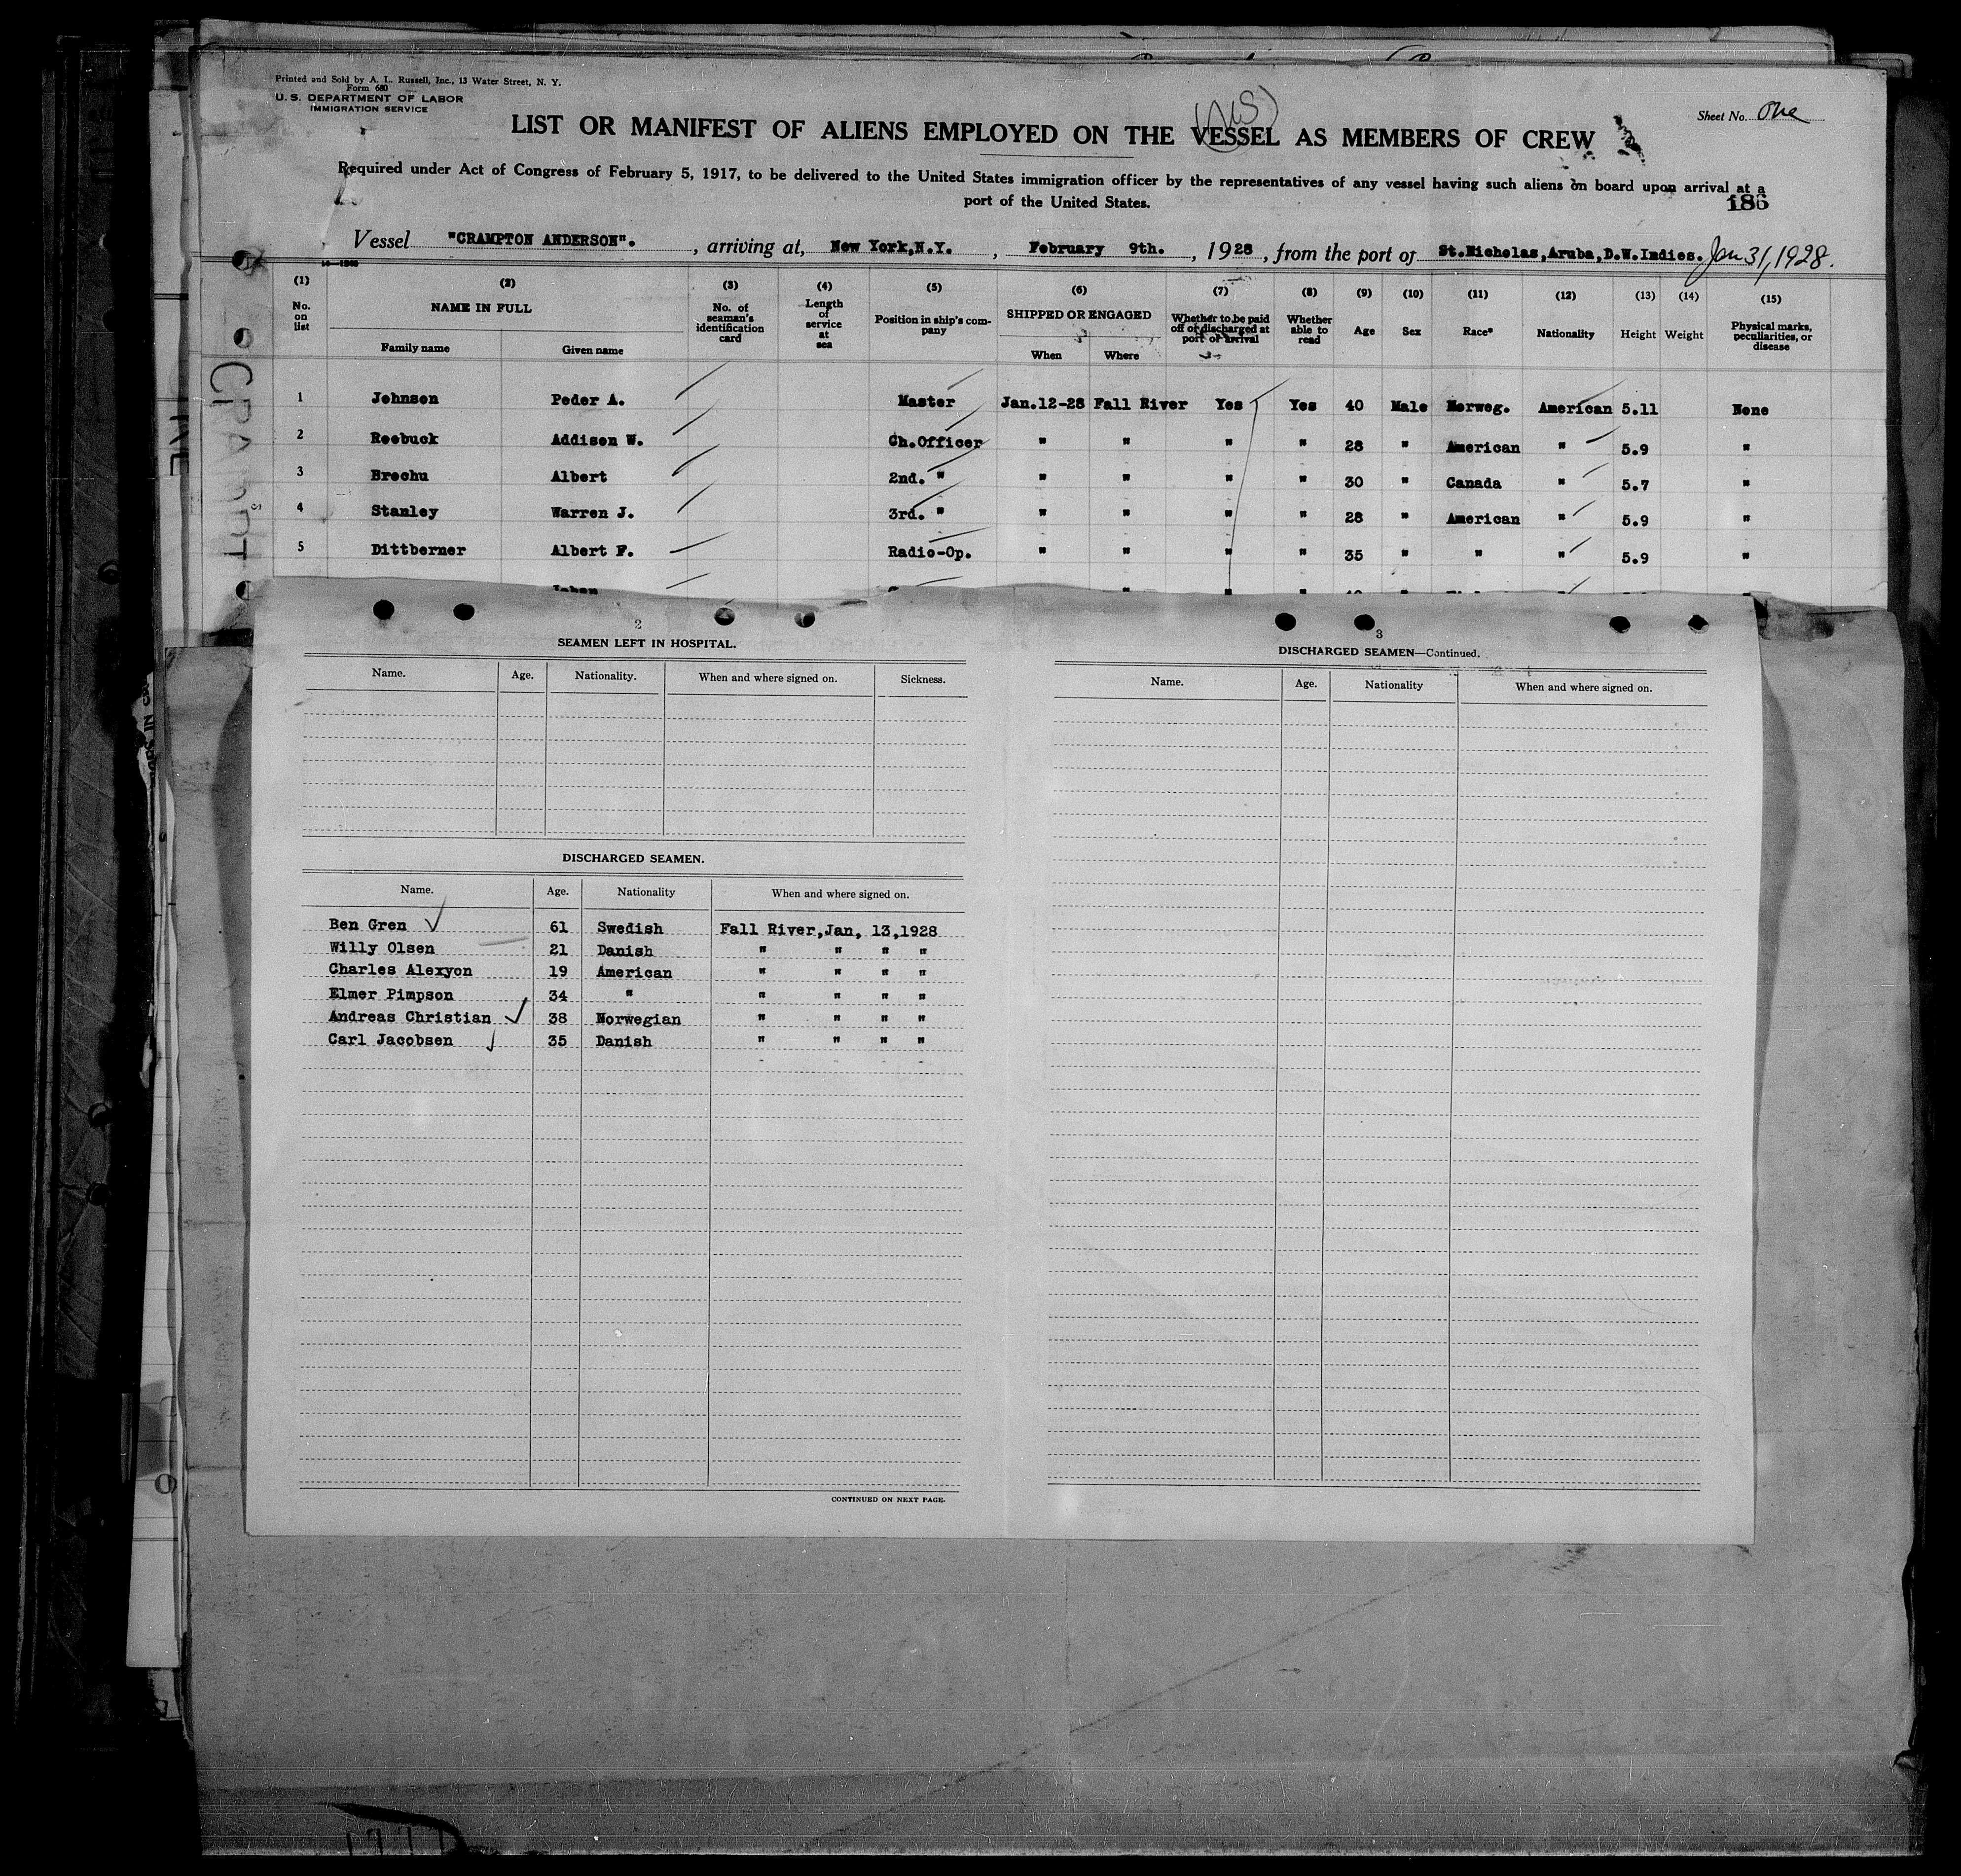 Printed and Sold by A. L. Russell, Inc., 13 Water Street, N. Y.
Form 680
U. S. DEPARTMENT OF LABOR
IMMIGRATION SERVICE
Sheet No. One
LIST OR MANIFEST OF ALIENS EMPLOYED ON THE VESSEL AS MEMBERS OF CREW
Required under Act of Congress of February 5, 1917, to be delivered to the United States immigration officer by the representatives of any vessel having such aliens on board upon arrival at a
port of the United States.
186
Vessel "CRAMPTON ANDERSON". , arriving at, New York,N.Y. , February 9th. , 1928 , from the port of St.Nicholas,Aruba,D.W.Indies. Jan 31, 1928.
(1) (2) (3) (4) (5) (6) (7) (8) (9) (10) (11) (12) (13) (14) (15)
No. on list NAME IN FULL No. of seaman's identification card Length of service at sea Position in ship's company SHIPPED OR ENGAGED Whether to be paid off or discharged at port of arrival Whether able to read Age Sex Race* Nationality Height Weight Physical marks, peculiarities, or disease
Family name Given name When Where
1 Johnson Peder A. Master Jan.12-28 Fall River Yes Yes 40 Male Norweg. American 5.11 None
2 Roebuck Addison W. Ch.Officer " " " " 28 " American " 5.9 "
3 Brochu Albert 2nd. " " " " " 30 " Canada " 5.7 "
4 Stanley Warren J. 3rd. " " " " " 28 " American " 5.9 "
5 Dittberner Albert F. Radio-Op. " " " " 35 " " " 5.9 "
2
SEAMEN LEFT IN HOSPITAL.
Name. Age. Nationality. When and where signed on. Sickness.
DISCHARGED SEAMEN.
Name. Age. Nationality When and where signed on.
Ben Gren 61 Swedish Fall River,Jan, 13,1928
Willy Olsen 21 Danish " " " "
Charles Alexyon 19 American " " " "
Elmer Pimpson 34 " " " " "
Andreas Christian 38 Norwegian " " " "
Carl Jacobsen 35 Danish " " " "
CONTINUED ON NEXT PAGE.
3
DISCHARGED SEAMEN—Continued.
Name. Age. Nationality When and where signed on.